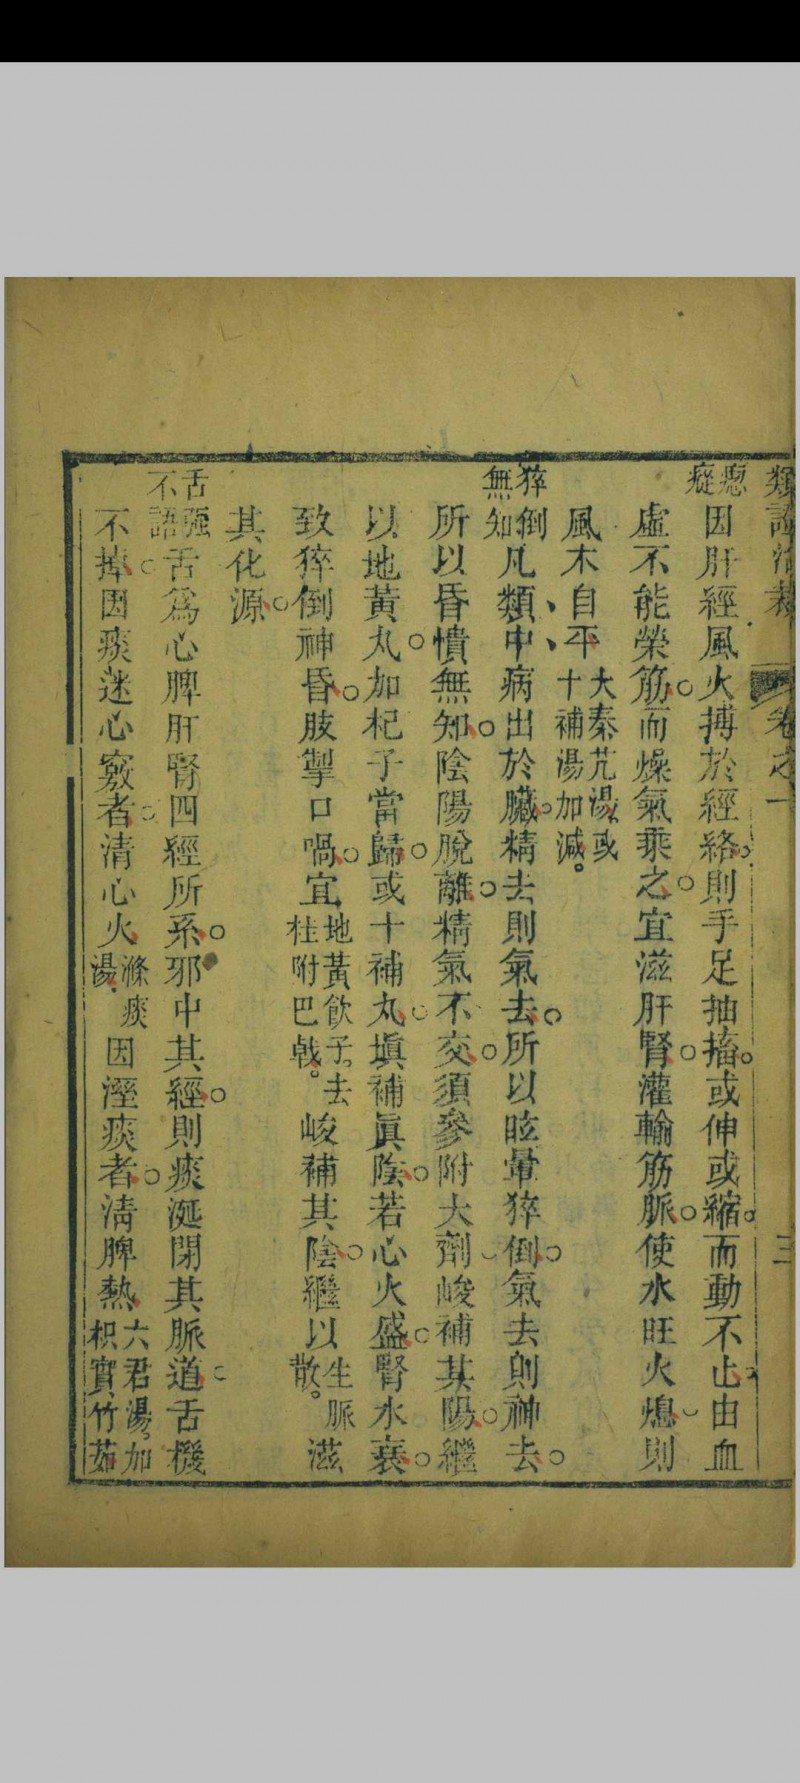 類證治裁 卷之一 三
瘛瘲
因肝經風火搏於經絡則手足抽搐或伸或縮而動不止由血
虛不能榮筋而燥氣乘之宜滋肝腎灌輸筋脈使水旺火熄則
風木自平大秦艽湯或十補湯加減
猝倒無知
凡類中病出於臟精去則氣去所以眩暈猝倒氣去則神去
所以昏憒無知陰陽脫離精氣不交須參附大劑峻補其陽繼
以地黃丸加杞子當歸或十補丸塡補眞陰若心火盛腎水衰
致猝倒神昏肢掣口喎宜地黃飲子去桂附巴戟峻補其陰繼以生脈散滋
其化源
舌强不語
舌爲心脾肝腎四經所系邪中其經則痰涎閉其脈道舌機
不掉因痰迷心竅者清心火滌痰湯因溼痰者清脾熱六君湯加枳實竹茹